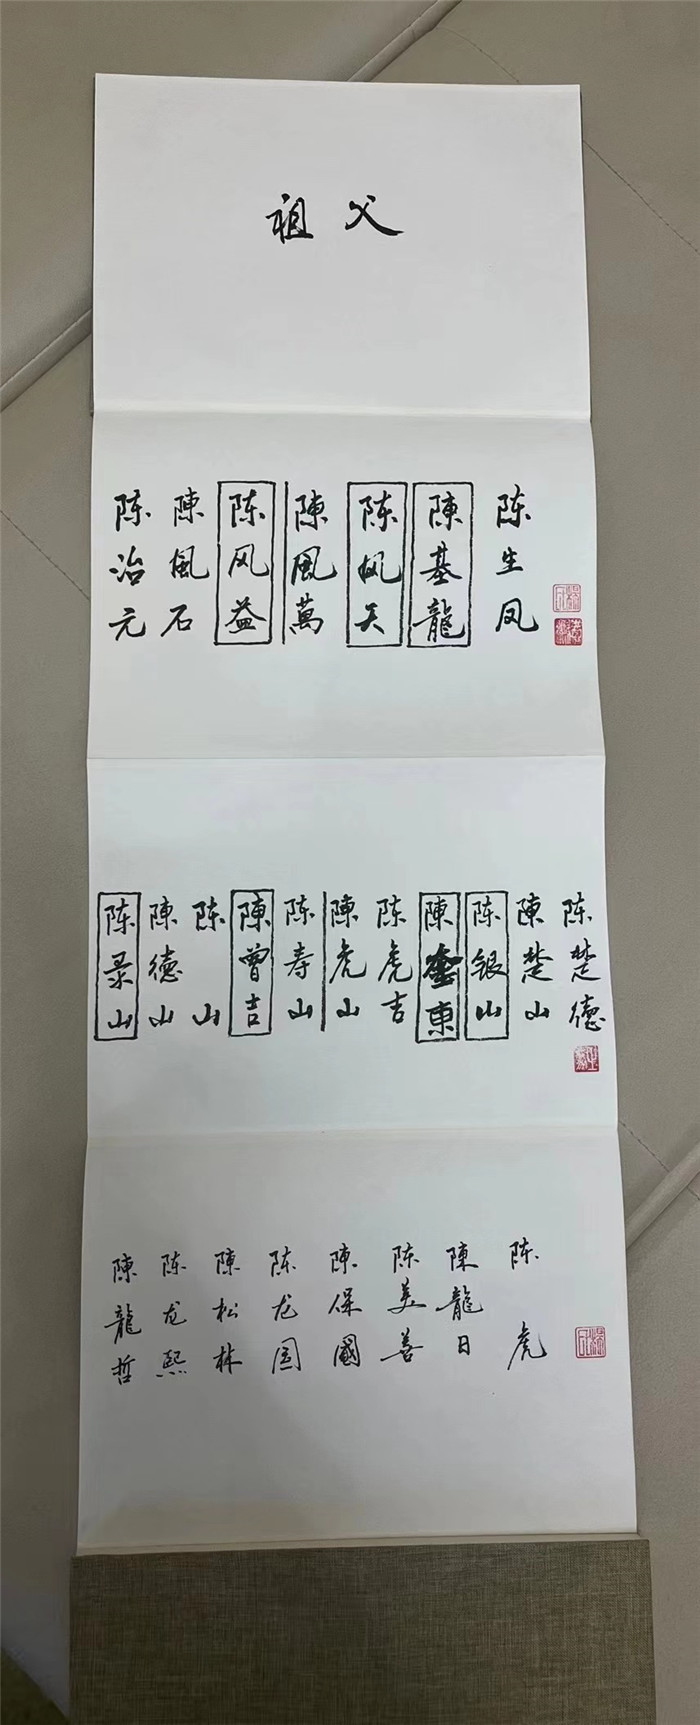 祖父
陈生凤
陳基龍
陈凤天
陳風萬
陈风益
陳風石
陈冶元
陈楚德
陳楚山
陈银山
陳金東
陈虎吉
陳虎山
陈寿山
陳曾吉
陈山
陳德山
陈景山
陈虎
陳龍日
陈美善
陳保國
陈龙国
陳松林
陈龙熙
陳龍哲